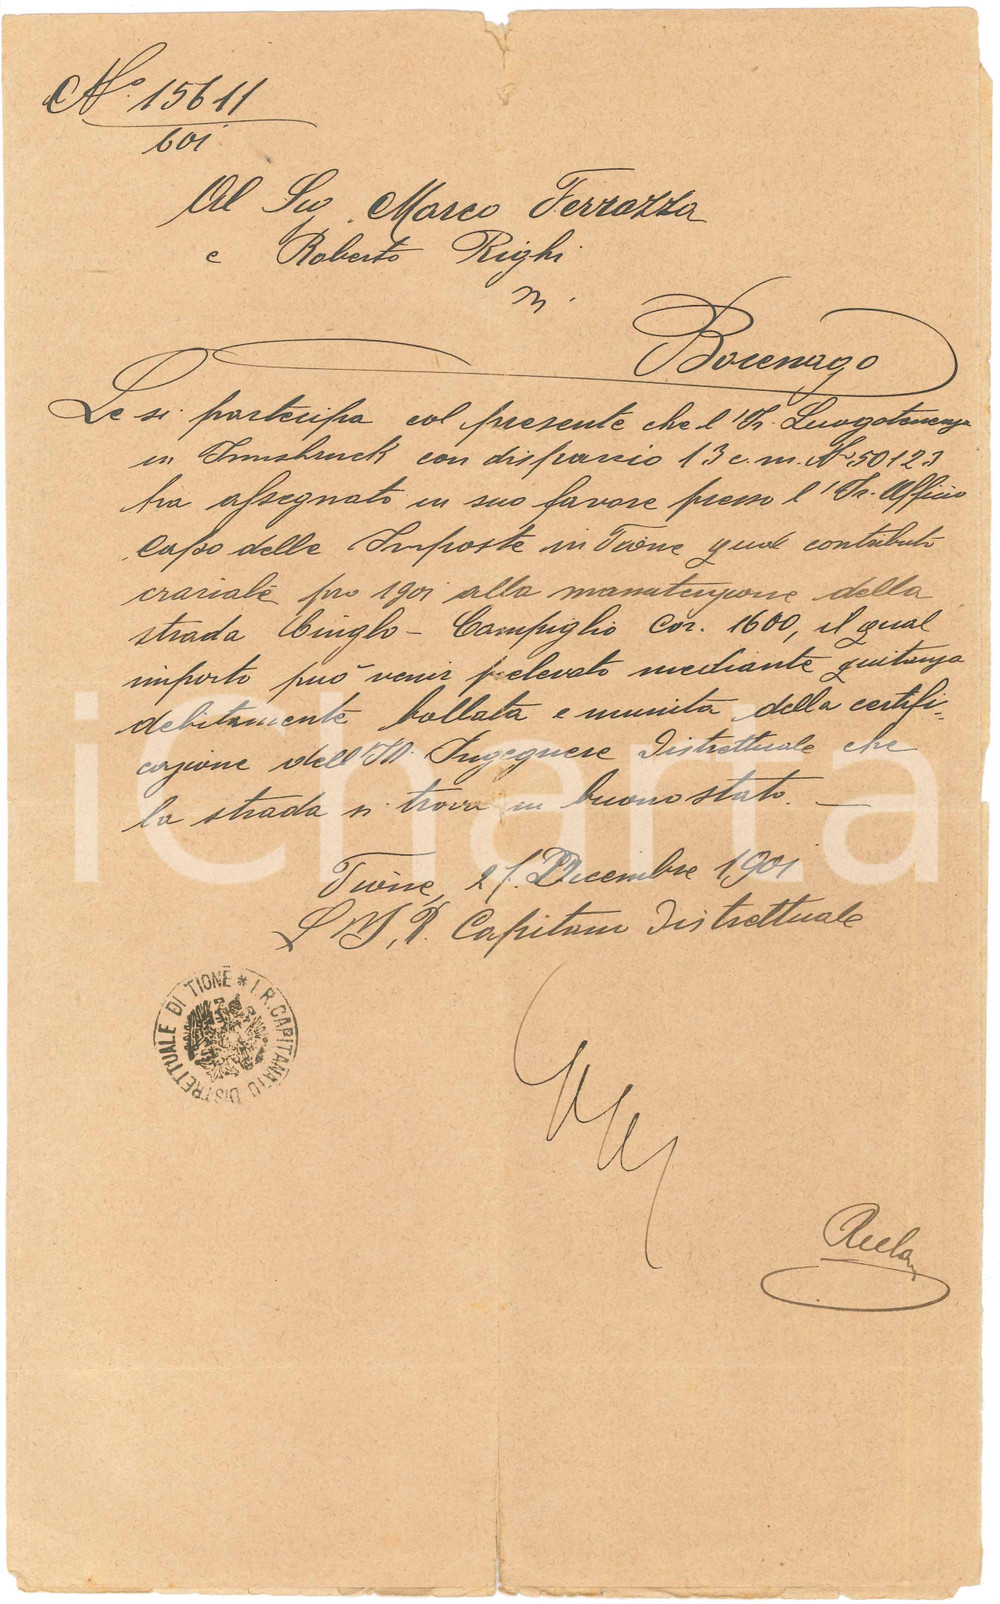 No. 15611
601
Al Sig. Marco Ferrazza
e Roberto Righi
in
Bocenago
Le si partecipa col presente che l'I.r. Luogotenenza
in Innsbruck con dispaccio 13 c.m. No 50123
ha assegnato in suo favore presso l'I.r. Officio
Capo delle Imposte in Tione qual contributo
erariale pro 1901 alla manutenzione della
strada Ginglo - Campiglio Cor. 1600, il qual
importo può venir prelevato mediante quitanza
debitamente bollata e munita della certifi-
cazione dell'I.R. Ingegnere Distrettuale che
la strada si trova in buono stato. —
Tione, 21. Dicembre 1901
L'I. R. Capitano Distrettuale
I. R. CAPITANATO DISTRETTUALE DI TIONE *
iCharta